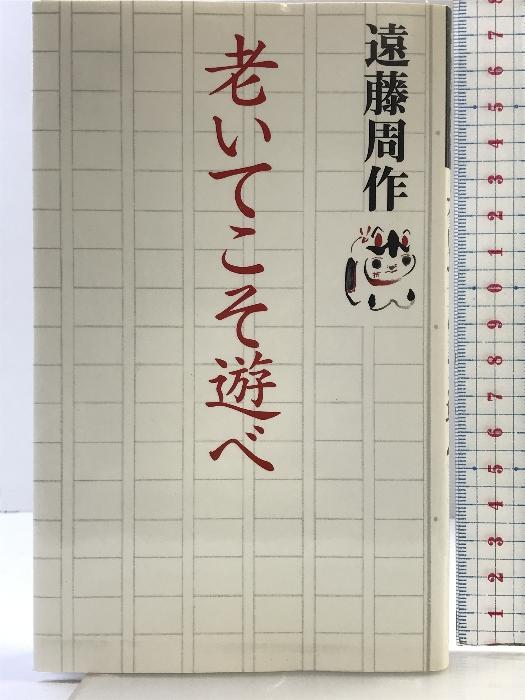 遠藤周作
老いてこそ遊べ
8
7
6
5
4
3
2
1
0
9
8
7
6
5
4
3
2
1